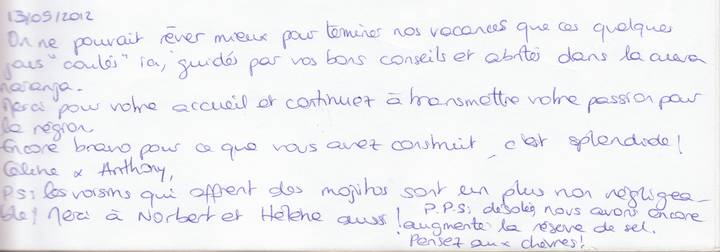 13/05/2012
On ne pouvait rêver mieux pour terminer nos vacances que ces quelques
jours "coulés" ici, guidés par vos bons conseils et abrités dans la cueva
naranja.
Merci pour votre accueil et continuez à transmettre votre passion pour
la région.
Encore bravo pour ce que vous avez construit, c'est splendide!
Céline & Anthony,
PS: les voisins qui offrent des mojitos sont un plus non négligea-
ble! Merci à Norbert et Hélène aussi!
P.P.S: désolés, nous avons encore
augmenté la réserve de sel.
Pensez aux chèvres!